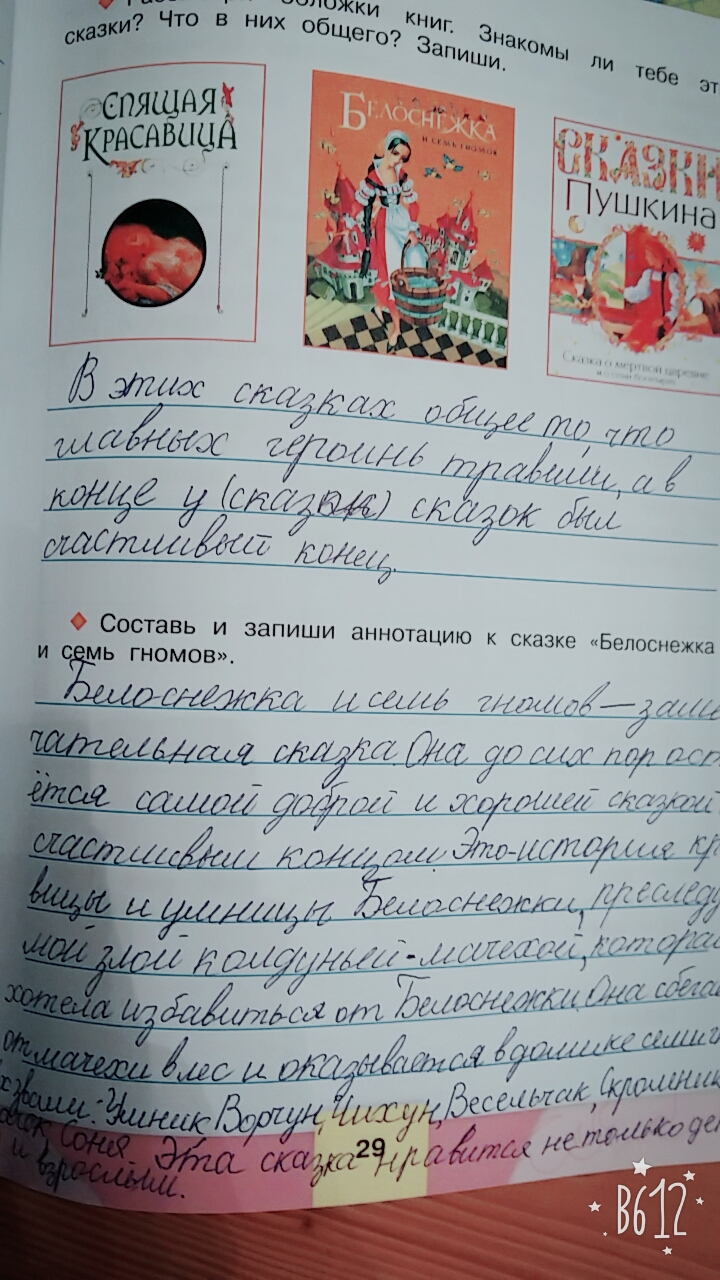 обложки книг. Знакомы ли тебе эт
сказки? Что в них общего? Запиши.
СПЯЩАЯ
КРАСАВИЦА
БЕЛОСНЕЖКА
И СЕМЬ ГНОМОВ
СКАЗКИ
Пушкина
Сказка о мертвой царевне
и о семи богатырях
В этих сказках общее то, что
главных героинь травили, а в
конце у (сказок) сказок был
счастливый конец.
Составь и запиши аннотацию к сказке «Белоснежка
и семь гномов».
Белоснежка и семь гномов — заме
чательная сказка. Она до сих пор ост
ётся самой доброй и хорошей сказкой
счастливым концом. Это-история кр
вицы и умницы Белоснежки, преследу
мой злой колдуньей-мачехой, которая
хотела избавиться от Белоснежки. Она сбега
от мачехи в лес и оказывается в домике семи г
х звали: Умник, Ворчун, Чихун, Весельчак, Скромник
Соня. Эта сказка нравится не только де
и взрослым.
29
B612